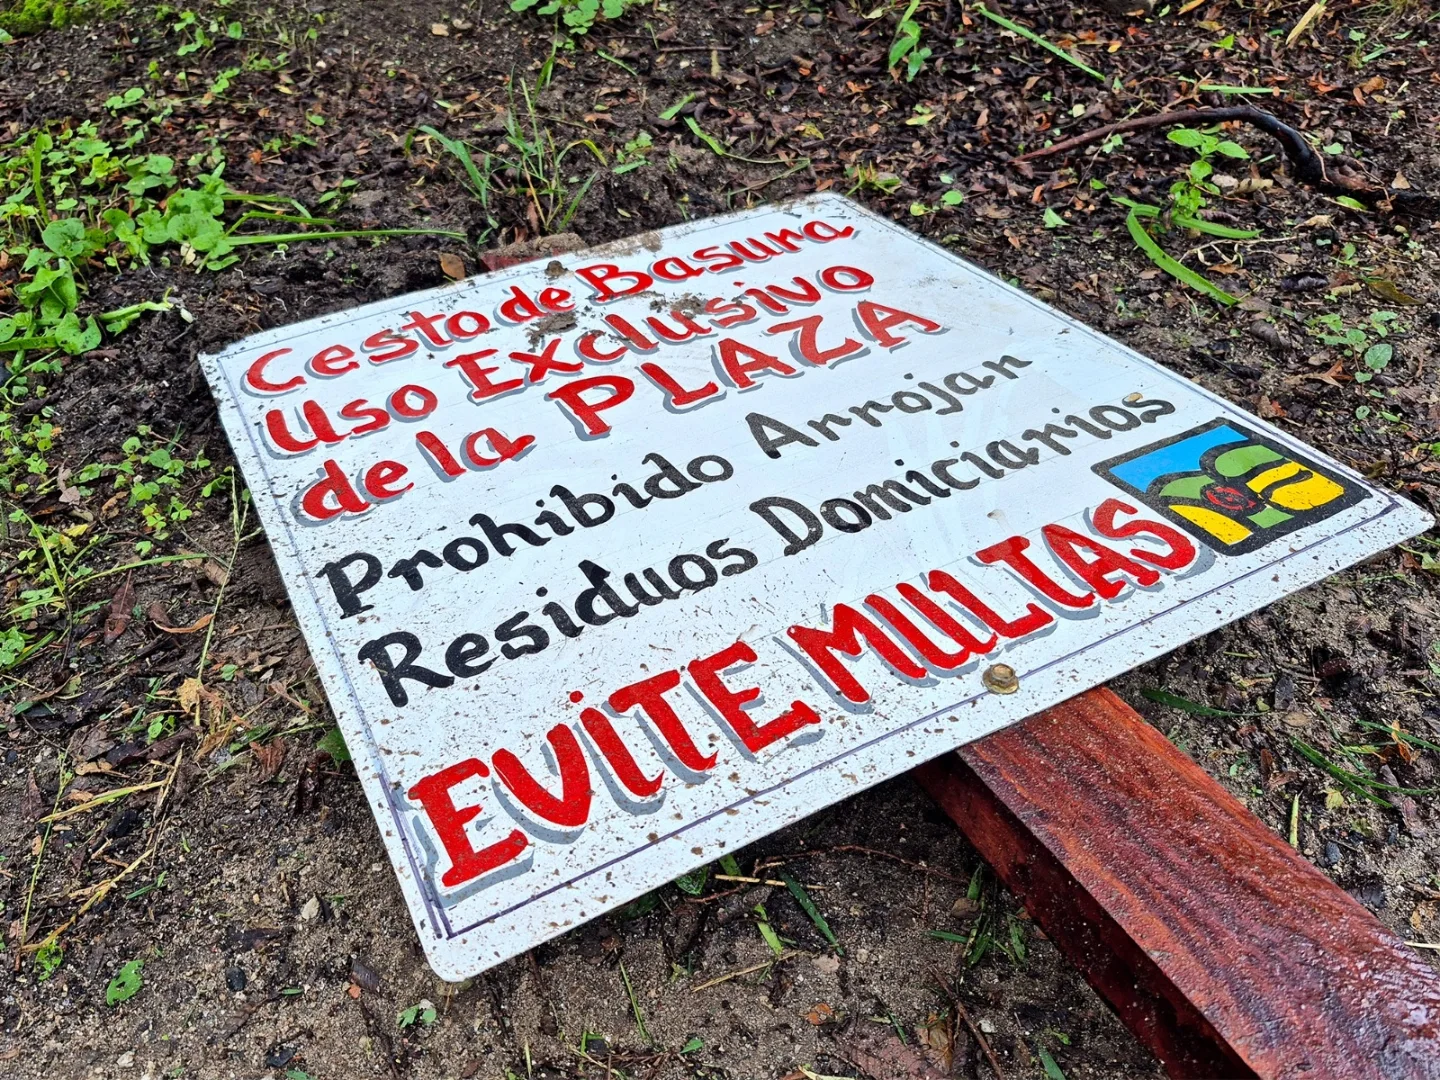 Cesto de Basura
Uso Exclusivo
de la PLAZA
Prohibido Arrojan
Residuos Domiciarios
EViTE MULTAS